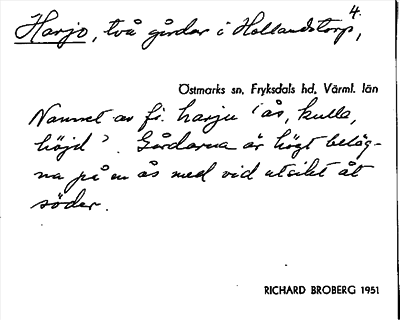 4.
Harjo, två gårdar i Hollandstorp,
Östmarks sn, Fryksdals hd, Värml. län
Namnet av fi. harju 'ås, kulle,
höjd'. Gårdarna är högt beläg-
na på en ås med vid utsikt åt
söder.
RICHARD BROBERG 1951